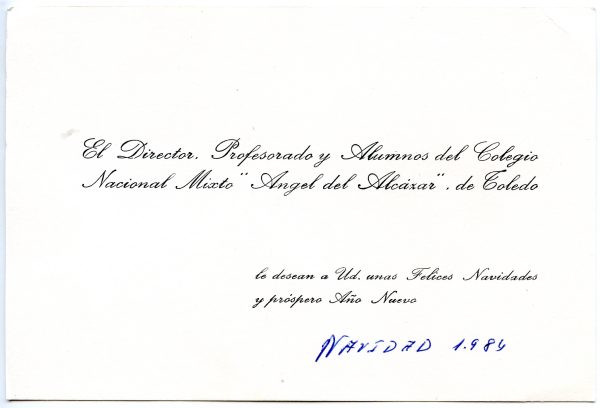 El Director, Profesorado y Alumnos del Colegio
Nacional Mixto "Angel del Alcázar", de Toledo
le desean a Ud. unas Felices Navidades
y próspero Año Nuevo
NAVIDAD 1.984